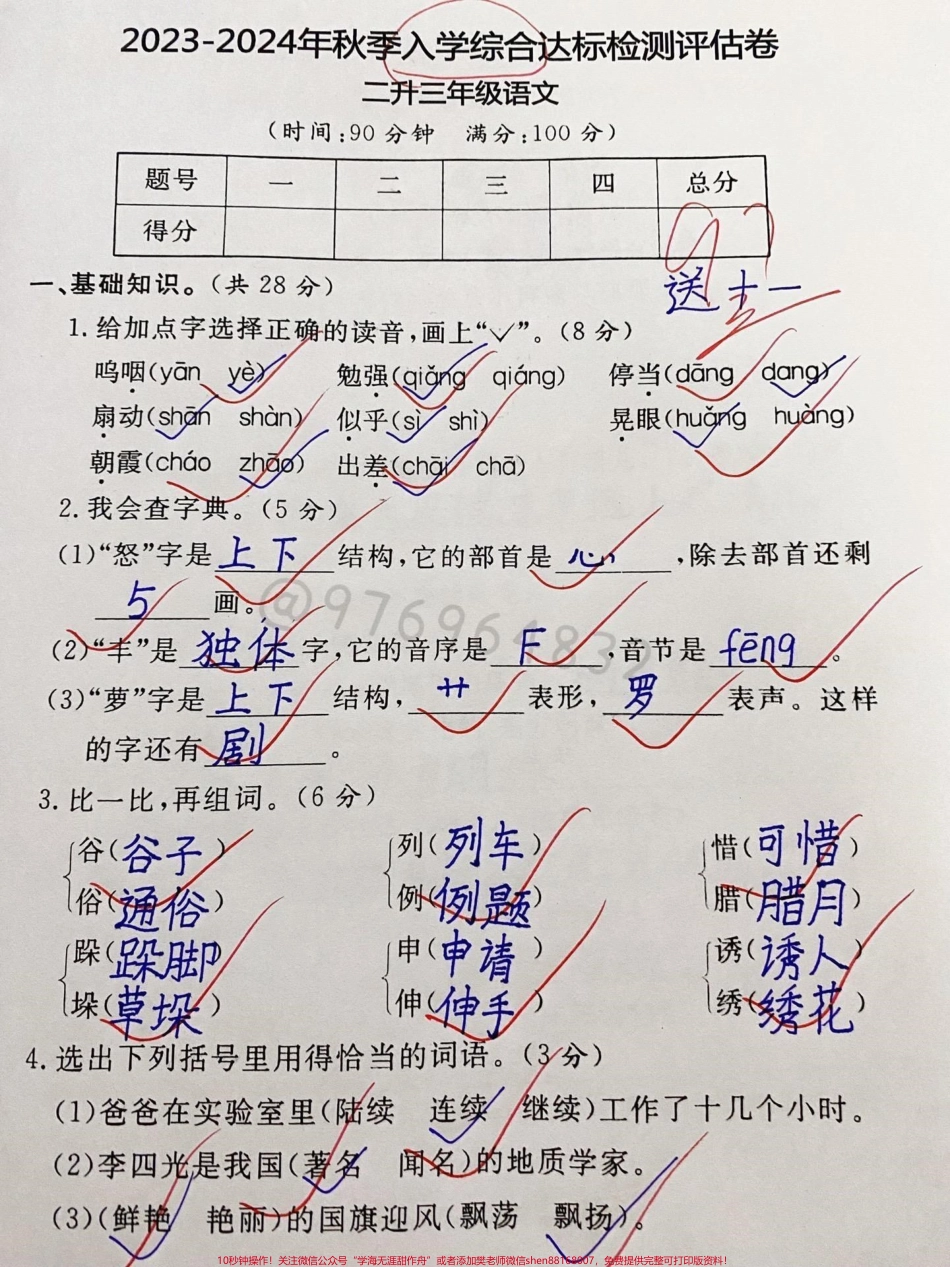 2023-2024年秋季入学综合达标检测评估卷
二升三年级语文
（时间:90分钟 满分:100分）
题号 一 二 三 四 总分
得分 97
送士一
一、基础知识。（共28分）
1.给加点字选择正确的读音,画上“✓”。（8分）
呜咽(yān yè) 勉强(qiǎng qiáng) 停当(dāng dang)
扇动(shān shàn) 似乎(sì shì) 晃眼(huǎng huàng)
朝霞(cháo zhāo) 出差(chāi chā)
2.我会查字典。（5分）
(1)“怒”字是上下结构,它的部首是心,除去部首还剩
5画。
@976964832
(2)“丰”是独体字,它的音序是F,音节是fēng。
(3)“萝”字是上下结构,艹表形,罗表声。这样
的字还有剧。
3.比一比,再组词。（6分）
谷(谷子) 列(列车) 惜(可惜)
俗(通俗) 例(例题) 腊(腊月)
跺(跺脚) 申(申请) 诱(诱人)
垛(草垛) 伸(伸手) 绣(绣花)
4.选出下列括号里用得恰当的词语。（3分）
(1)爸爸在实验室里(陆续 连续 继续)工作了十几个小时。
(2)李四光是我国(著名 闻名)的地质学家。
(3)(鲜艳 艳丽)的国旗迎风(飘荡 飘扬)。
10秒钟操作！关注微信公众号“学海无涯甜作舟”或者添加樊老师微信shen88168007，免费提供完整可打印版资料！